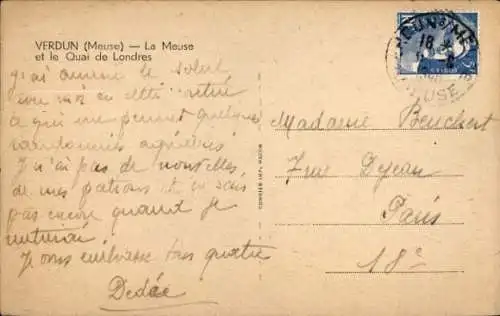 VERDUN (Meuse) — La Meuse
et le Quai de Londres
j'ai amené le soleil
avec moi en cette
ce qui me permet quelques
randonnées agréables
Je n'ai pas de nouvelles
de mes patrons et ne sais
pas encore quand je
rentrerai.
Je vous embrasse tous quatre
Dedée
Madame Beuchert
7 rue Dejean
Paris
18e
VERDUN S/ MEUSE
18
MEUSE